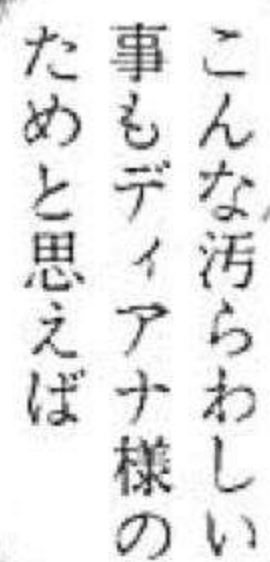 こんな汚らわしい
事もディアナ様の
ためと思えば